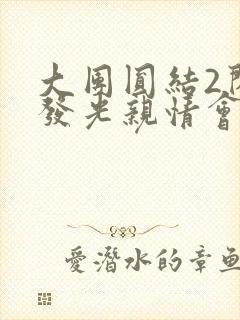 大团圆結2
發光親情會
愛潛水的章魚